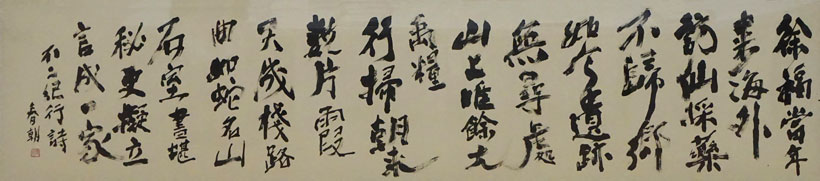 徐福當年
来海外
訪仙採藥
不歸鄉
如今遺跡
無尋處
山上唯餘太
禹糧
行掃朝来
數片霞
天成棧路
曲如蛇名山
石室書堪
秘更擬立
言成一家
不二紀行詩
春朝